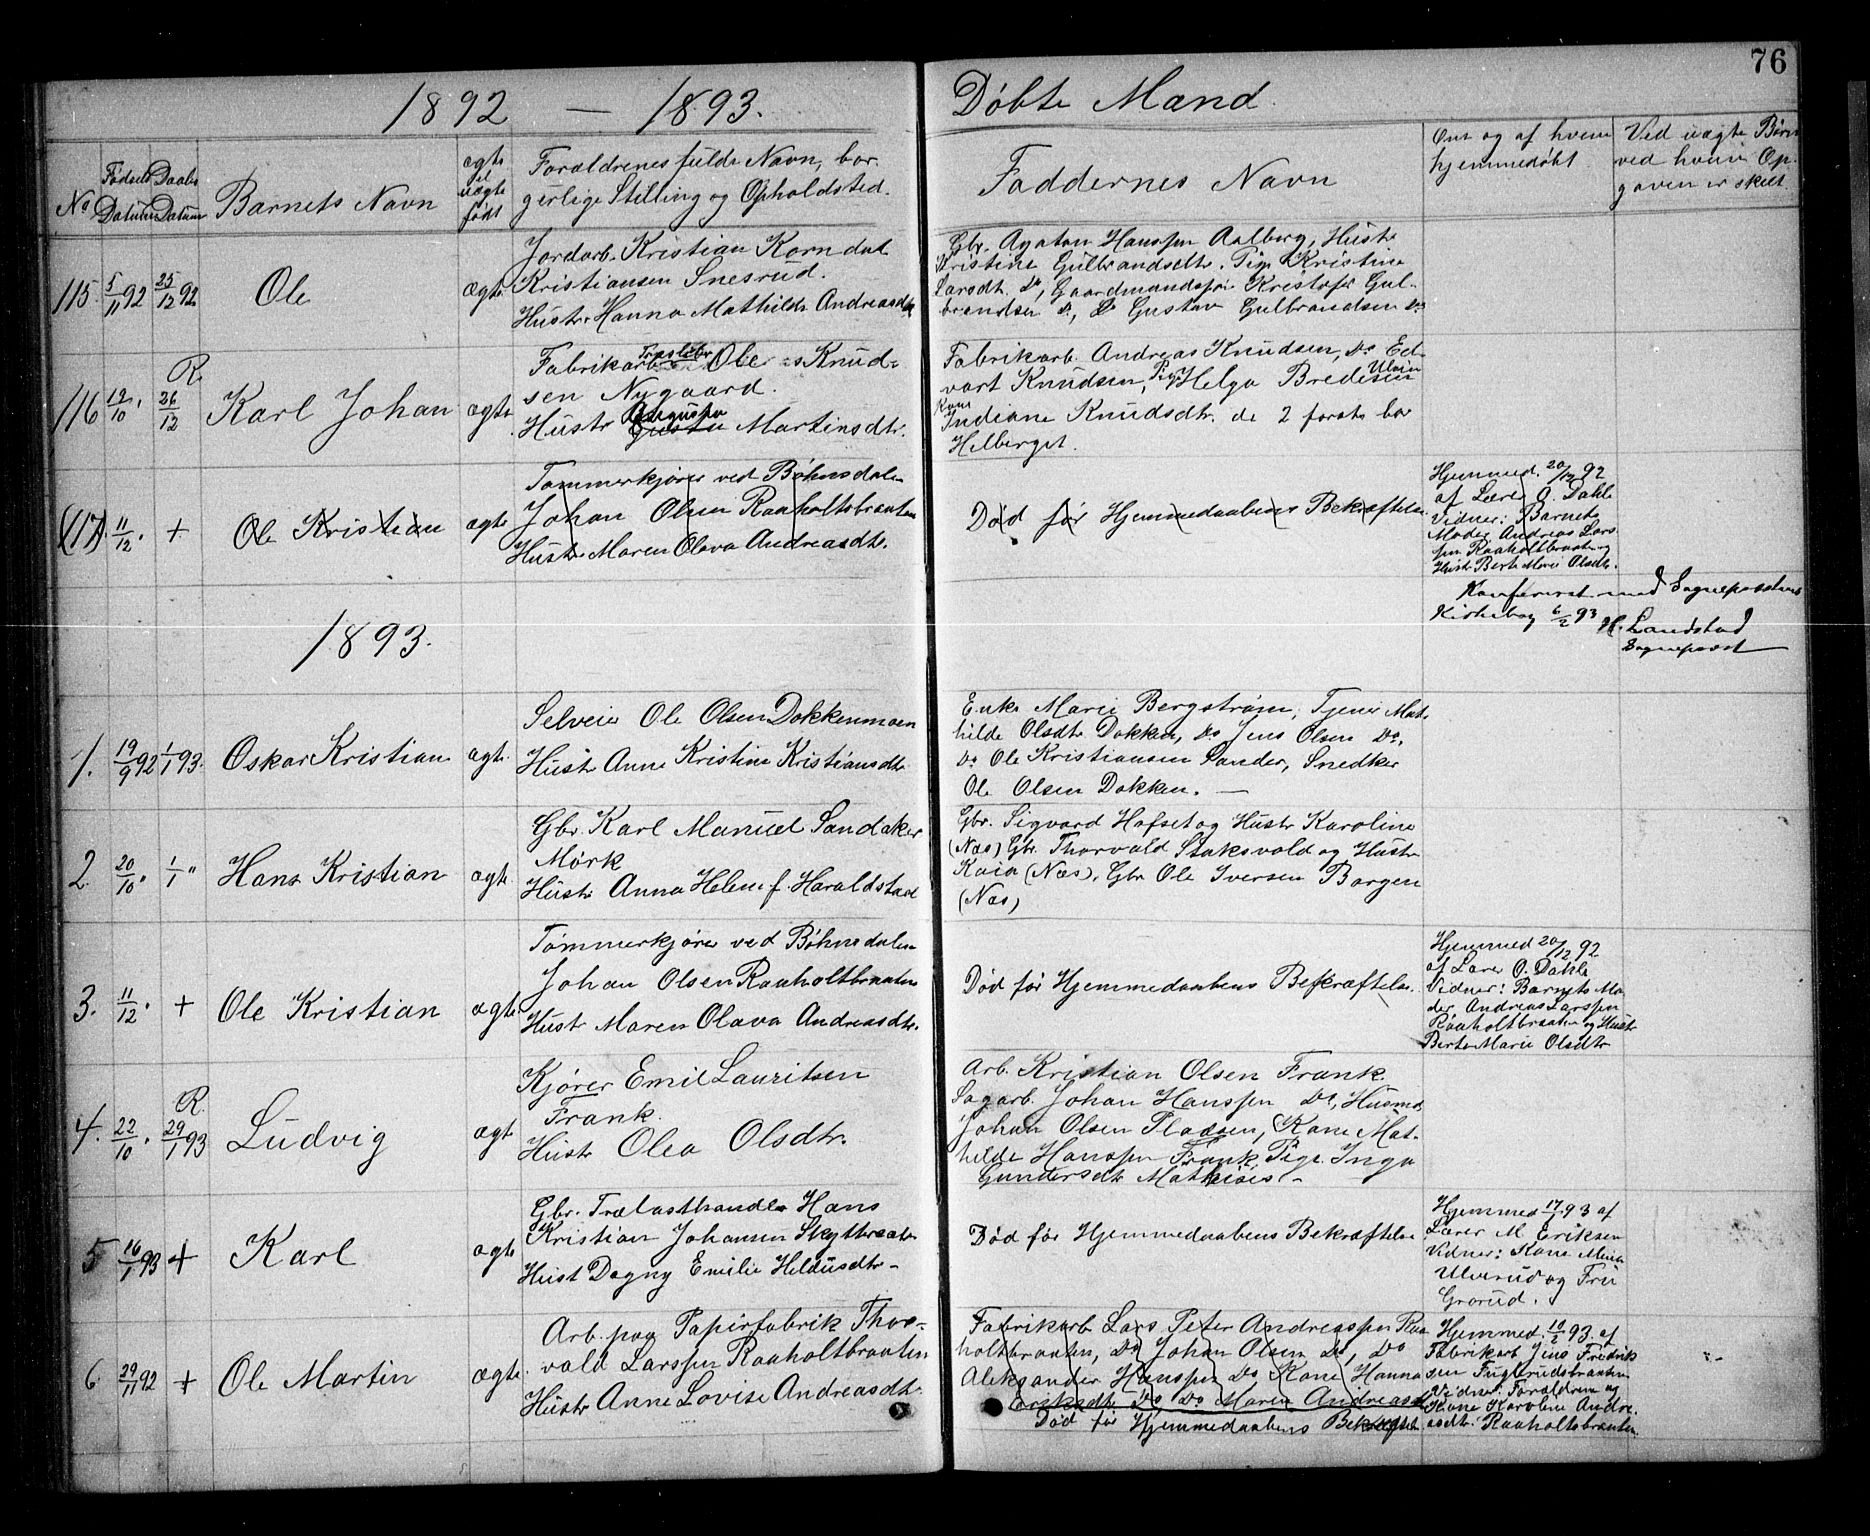 76
1892 — 1893.
Døbte Mænd.
No
Fødsels Datum
Daabs Datum
Barnets Navn
ægte el uægte født
Forældrenes fulde Navn, bor-
gerlige Stilling og Opholdsted.
Faddernes Navn
Om og af hvem
hjemmedøbt
Ved uægte Børn
ved hvem Op-
gaven er skeet
115 5/11 92 25/12 92 Ole ægte
Jordarb. Kristian Korndal
Kristiansen Snesrud.
Hustr. Hanna Mathilde Andreasdtr
Gbr. Agaton Hanssen Aalberg, Hustr
Kristine Gulbrandsdtr. Pige Kristine
Larsdt. Do, Gaardmandssøn Kristofer Gul-
brandsen Do, Do Gustav Gulbrandsen Do
116 12/10 " R. 26/12 Karl Johan ægte
Fabrikarb. Træsliber Ole Knud-
sen Nygaard.
Hustr Augusta Martinsdtr.
Fabrikarb. Andreas Knudsen, Do Ed-
vart Knudsen, Pige Helga Bredesen Ulvin
Kone Indiane Knudsdtr. de 2 første bor
Helberget.
(117) 11/12 " + Ole Kristian ægte
Tømmerkjører ved Bøhnsdalen
Johan Olsen Raaholtbraaten
Hustr Maren Olava Andreasdtr.
Død før Hjemmedaabens Bekræftelse.
Hjemmed. 20/12 92
af Lærer O. Dahle
Vidner: Barnets
Moder, Andreas Lars-
sen Raaholtbraaten og
Hustr Berte Marie Olsdtr.
Konfereret med Sognepræstens
Kirkebog 6/2 93 H. Landstad
Sognepræst
1893.
1. 19/9 92 1/1 93. Oskar Kristian ægte
Selveier Ole Olsen Dokkenmoen
Hustr Anne Kristine Kristiansdtr
Enke Marie Bergstrøm, Tjener Mat-
hilde Olsdtr Dokken, Do Jens Olsen Do,
Do Ole Kristiansen Sander, Snedker
Ole Olsen Dokken. —
2. 20/10 " 1/1 " Hans Kristian ægte
Gbr Karl Manuel Sandaker
Mørk
Hustr Anna Helene f. Haraldstad
Gbr. Sigvard Hofset og Hustr Karoline
(Næs) Gbr. Thorvald Staksvold og Hustr
Kaia (Næs), Gbr Ole Iversen Borgen
(Næs)
3. 11/12 " + Ole Kristian ægte
Tømmerkjører ved Bøhnsdalen
Johan Olsen Raaholtbraaten
Hustr Maren Olava Andreasdtr.
Død før Hjemmedaabens Bekræftelse.
Hjemmed 20/12 92
af Lærer O. Dahle
Vidner: Barnets Mo-
der, Andreas Larssen
Raaholtbraaten og Hustr
Berte Marie Olsdtr
4. 22/10 " R. 29/1 93 Ludvig ægte
Kjører Emil Lauritsen
Frank.
Hustr Olea Olsdtr.
Arb. Kristian Olsen Frank.
Sagarb. Johan Hanssen Do, Husmd.
Johan Olsen Pladsen, Kone Mat-
hilde Hanssen Frank, Pige Inga
Gundersdtr Mathisis —
5 16/1 93 + Karl ægte
Gbr. Trælasthandler Hans
Kristian Johansen Skytteraaten
Hust Dagny Emilie Heldusdtr —
Død før Hjemmedaabens Bekræftelse
Hjemmed 17/1 93 af
Lærer M Eriksen
Vidner: Kone Marie
Ulverud og Fru
Grorud.
6. 29/11 92 + Ole Martin ægte
Arb. paa Papirfabrik Thor-
vald Larssen Raaholtbraaten
Hustr Anne Lovise Andreasdtr.
Fabrikarb Lars Peter Andreassen Raa-
holtbraaten, Do Johan Olsen Do, Do
Aleksander Hanssen Do, Kone Hanna
Eriksdtr Do, Do Maren Andreasdtr
Død før Hjemmedaabens Bekræftelse
Hjemmed. 10/2 93. af
Fabrikarb Jens Fredrik-
sen Fuglerudsbraaten
Vidner: Forældrene og
Kone Karoline Andre-
asdtr. Raaholtsbraaten.